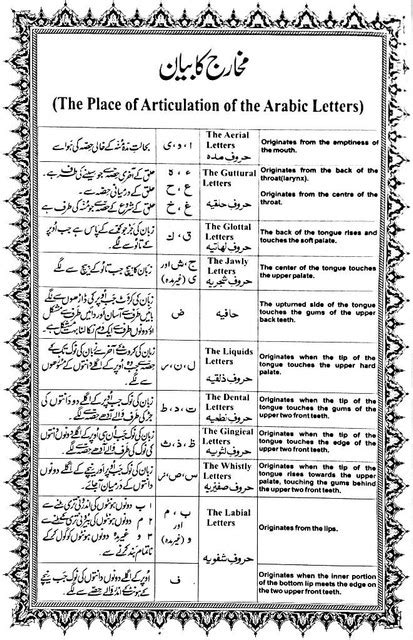 مخارج کا بیان
(The Place of Articulation of the Arabic Letters)
The Aerial Letters
حروف مدہ
ا، و، ی
بحالتِ مدّہ مُنہ کے خالی حصّہ کی ہوا سے
Originates from the emptiness of
the mouth.
The Guttural
Letters
حروف حلقیہ
ء، ہ
ع، ح
غ، خ
حلق کے آخری حصّے جو سینے کی طرف ہے۔
حلق کے درمیانی حصّہ سے۔
حلق کے شروع کے حصّہ جو مُنہ کی طرف ہے
Originates from the back of the
throat(larynx).
Originates from the centre of the
throat.
The Glottal
Letters
حروف لہاتیہ
ق، ک
زبان کی جڑ جو کوّے کے پاس ہے جب اُوپر
کے تالو سے لگے
The back of the tongue rises and
touches the soft palate.
The Jawly
Letters
حروف شجریہ
ج، ش اور
ی (غیر مدہ)
زبان کا بیچ جب تالو کے بیچ سے لگے
The center of the tongue touches
the upper palate.
حافیہ
ض
زبان کی کروٹ جب اُوپر کی ڈاڑھوں سے لگے
بائیں طرف سے آسان اور دائیں طرف سے مشکل
اور دونوں طرف سے ایک دم نکالنا بہت مشکل ہے۔
The upturned side of the tongue
touches the gums of the upper
back teeth.
The Liquids
Letters
حروف ذلقیہ
ل، ن، ر
Originates when the tip of the
tongue touches the upper hard
palate.
The Dental
Letters
حروف نطعیہ
ت، د، ط
زبان کی نوک جب اُوپر کے اگلے دو دانتوں کی
Originates when the tip of the
tongue touches the gums of the
upper two front teeth.
The Gingical
Letters
حروف لثویہ
ظ، ذ، ث
Originates when the tip of the
tongue touches the edge of the
upper two front teeth.
The Whistly
Letters
حروف صفیریہ
س، ص، ز
دانتوں کے درمیان آجائے۔
Originates when the tip of the
tongue rises towards the upper
palate, touching the gums behind
the upper two front teeth.
The Labial
Letters
حروف شفویہ
ب، م
اور
و (غیر مدہ)
ا ب دونوں ہونٹوں کی اندرونی تری ملنے سے
۲ م دونوں ہونٹوں کی بیرونی تری ملنے سے
۳ و غیر مدہ دونوں ہونٹوں کو گول کر کے
ناتمام بند کرنے سے
Originates from the lips.
ف
اُوپر کے اگلے دونوں دانتوں کی نوک جب نیچے
کے ہونٹ کے اندر والے حصّے سے لگے۔
Originates when the inner portion
of the bottom lip meets the edge on
the two upper front teeth.